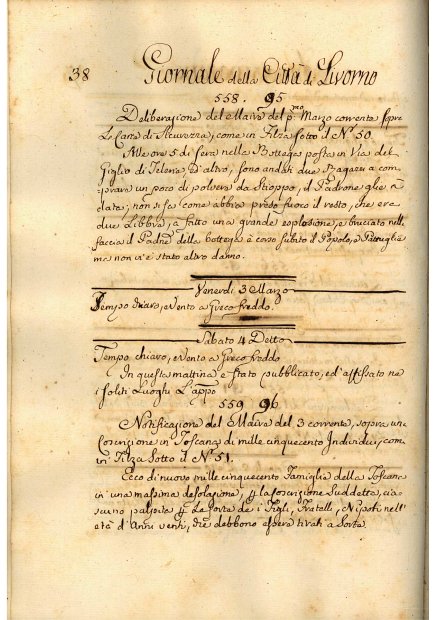 38 Giornale della Città di Livorno
558. 95
Deliberazione del Maire del p.mo Marzo corrente sopra
Le Carte di Sicurezza, come in Filza sotto il N.° 50.
Alle ore 5 di sera nella Bottega posta in Via del
Giglio di Telerie D'altro, sono andati due Ragazzi a com-
prare un poco di polvere da Stioppo, il Padrone glie à
data; non si sa come abbia preso fuoco il resto, che era
due Libbre, à fatto una grande esplosione, e bruciato nella
faccia il Padne della bottega è corso subito il Popolo, e Pattuglie
ma non vi è stato altro danno.
Venerdì 3 Marzo
Tempo chiaro, e Vento a Greco freddo.
Sabato 4 Detto
Tempo chiaro, e Vento a Greco freddo
In questa mattina è stato pubblicato, ed affissato ne
i soliti Luoghi L'appo
559 96
Notificazione del Maire del 3 corrente, sopra una
Coscrizione in Toscana di mille cinquecento Individui, come
in Filza Sotto il N.° 51.
Ecco di nuovo mille cinquecento Famiglie della Toscana
in una massima desolazione, p la Coscrizione Suddetta, cia-
scuno palpita p La Sorte de i Figli, Fratelli, Nipoti nell'
età d'Anni venti, che debbono essere tirati a Sorte